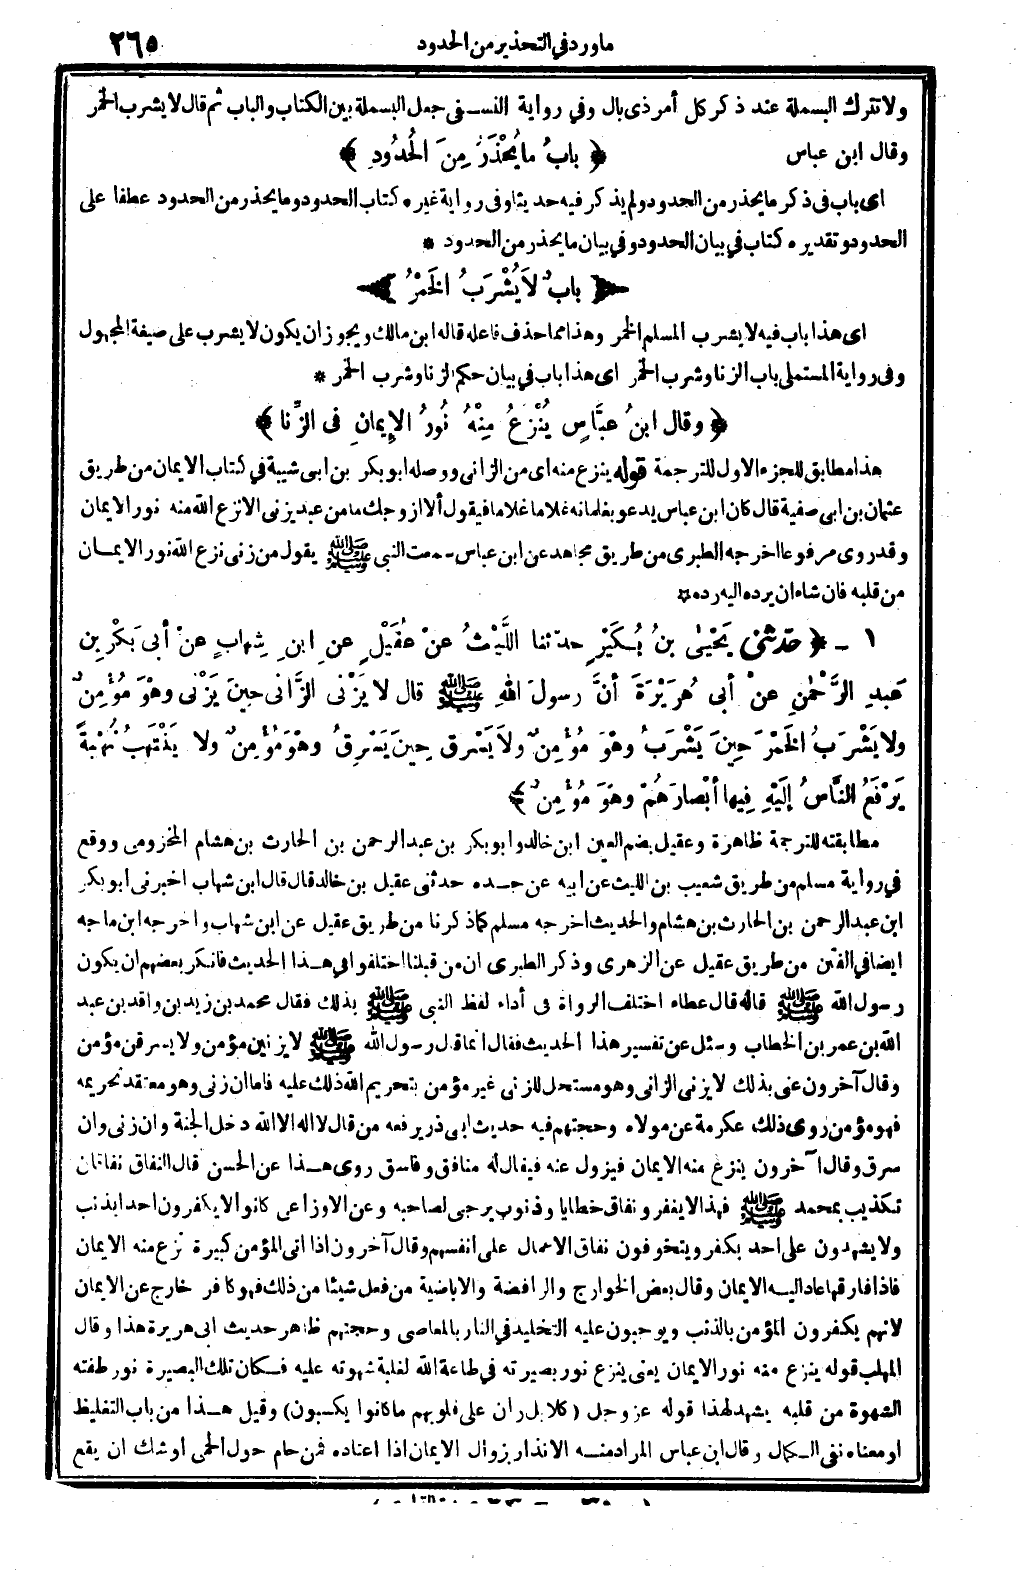 ما ورد في التحذير من الحدود ٢٦٥
ولا تترك البسملة عند ذكر كل أمر ذي بال وفي رواية النسفي جعل البسملة بين الكتاب والباب ثم قال لا يشرب الخمر
وقال ابن عباس ﴿ بابُ ما يُحْذَرُ مِنَ الحُدُودِ ﴾
اى باب فى ذكر ما يحذر من الحدود ولم يذكر فيه حديثا وفى رواية غيره كتاب الحدود وما يحذر من الحدود عطفا على
الحدود وتقديره كتاب في بيان الحدود وفي بيان ما يحذر من الحدود *
﴿ بابٌ لاَ يُشْرَبُ الخَمْرُ ﴾
اى هذا باب فيه لا يشرب المسلم الخمر وهذا مما حذف فاعله قاله ابن مالك ويجوز ان يكون لا يشرب على صيغة المجهول
وفى رواية المستملى باب الزنا وشرب الخمر اى هذا باب في بيان حكم الزنا وشرب الخمر *
﴿ وقال ابنُ عبَّاسٍ يُنْزَعُ مِنْهُ نُورُ الإِيمانِ فى الزِّنا ﴾
هذا مطابق للجزء الاول للترجمة قوله ينزع منه اى من الزانى ووصله ابو بكر بن ابى شيبة في كتاب الايمان من طريق
عثمان بن ابى صفية قال كان ابن عباس يدعو بغلمانه غلاما غلاما فيقول ألا ازوجك ما من عبد يزنى الا نزع الله منه نور الايمان
وقد روى مرفوعا اخرجه الطبرى من طريق مجاهد عن ابن عباس سمعت النبى ﷺ يقول من زنى نزع الله نور الايمان
من قلبه فان شاء ان يرده اليه رده *
١ ـ ﴿ حدّثنى يَحْيَى بنُ بُكَيْرٍ حدثنا اللَّيْثُ عنْ عُقَيْلٍ عنِ ابنِ شِهابٍ عنْ أبى بَكْرِ بنِ
عبدِ الرَّحْمٰنِ عنْ أبى هُرَيْرَةَ أنَّ رسولَ اللهِ ﷺ قال لا يَزْنى الزَّانى حِينَ يَزْنى وهْوَ مُؤْمِنٌ
ولا يَشْرَبُ الخَمْرَ حِينَ يَشْرَبُ وهْوَ مُؤْمِنٌ ولا يَسْرِقُ حِينَ يَسْرِقُ وهْوَ مُؤْمِنٌ ولا يَنْتَهِبُ نُهْبَةً
يَرْفَعُ النَّاسُ إلَيْهِ فِيها أبْصارَهُمْ وهْوَ مُؤْمِنٌ ﴾
مطابقته للترجمة ظاهرة وعقيل بضم العين ابن خالد وابو بكر بن عبد الرحمن بن الحارث بن هشام المخزومى ووقع
في رواية مسلم من طريق شعيب بن الليث عن ابيه عن جده حدثنى عقيل بن خالد قال قال ابن شهاب اخبرنى ابو بكر
ابن عبد الرحمن بن الحارث بن هشام والحديث اخرجه مسلم كما ذكرنا من طريق عقيل عن ابن شهاب واخرجه ابن ماجه
ايضا في الفتن من طريق عقيل عن الزهرى وذكر الطبرى ان من قبلنا اختلفوا في هذا الحديث فانكر بعضهم ان يكون
رسول الله ﷺ قاله قال عطاء اختلف الرواة فى أداء لفظ النبى ﷺ بذلك فقال محمد بن زيد بن واقد بن عبد
الله بن عمر بن الخطاب وسئل عن تفسير هذا الحديث فقال انما قال رسول الله ﷺ لا يزنين مؤمن ولا يسرقن مؤمن
وقال آخرون عنى بذلك لا يزنى الزانى وهو مستحل للزنى غير مؤمن بتحريم الله ذلك عليه فاما ان زنى وهو معتقد تحريمه
فهو مؤمن روى ذلك عكرمة عن مولاه وحجتهم فيه حديث ابى ذر يرفعه من قال لا اله الا الله دخل الجنة وان زنى وان
سرق وقال آخرون ينزع منه الايمان فيزول عنه فيقال له منافق وفاسق روى هذا عن الحسن قال النفاق نفاقان
تكذيب بمحمد ﷺ فهذا لا يغفر ونفاق خطايا وذنوب يرجى لصاحبه وعن الاوزاعى كانوا لا يكفرون احدا بذنب
ولا يشهدون على احد بكفر ويتخوفون نفاق الاعمال على انفسهم وقال آخرون اذا اتى المؤمن كبيرة نزع منه الايمان
فاذا فارقها عاد اليه الايمان وقال بعض الخوارج والرافضة والاباضية من فعل شيئا من ذلك فهو كافر خارج عن الايمان
لانهم يكفرون المؤمن بالذنب ويوجبون عليه التخليد في النار بالمعاصى وحجتهم ظاهر حديث ابى هريرة هذا وقال
المهلب قوله ينزع منه نور الايمان يعنى ينزع نور بصيرته في طاعة الله لغلبة شهوته عليه فكان تلك البصيرة نور طفته
الشهوة من قلبه يشهد لهذا قوله عز وجل (كلا بل ران على قلوبهم ما كانوا يكسبون) وقيل هذا من باب التغليظ
او معناه نفى الكمال وقال ابن عباس المراد منه الانذار بزوال الايمان اذا اعتاده فمن حام حول الحمى اوشك ان يقع